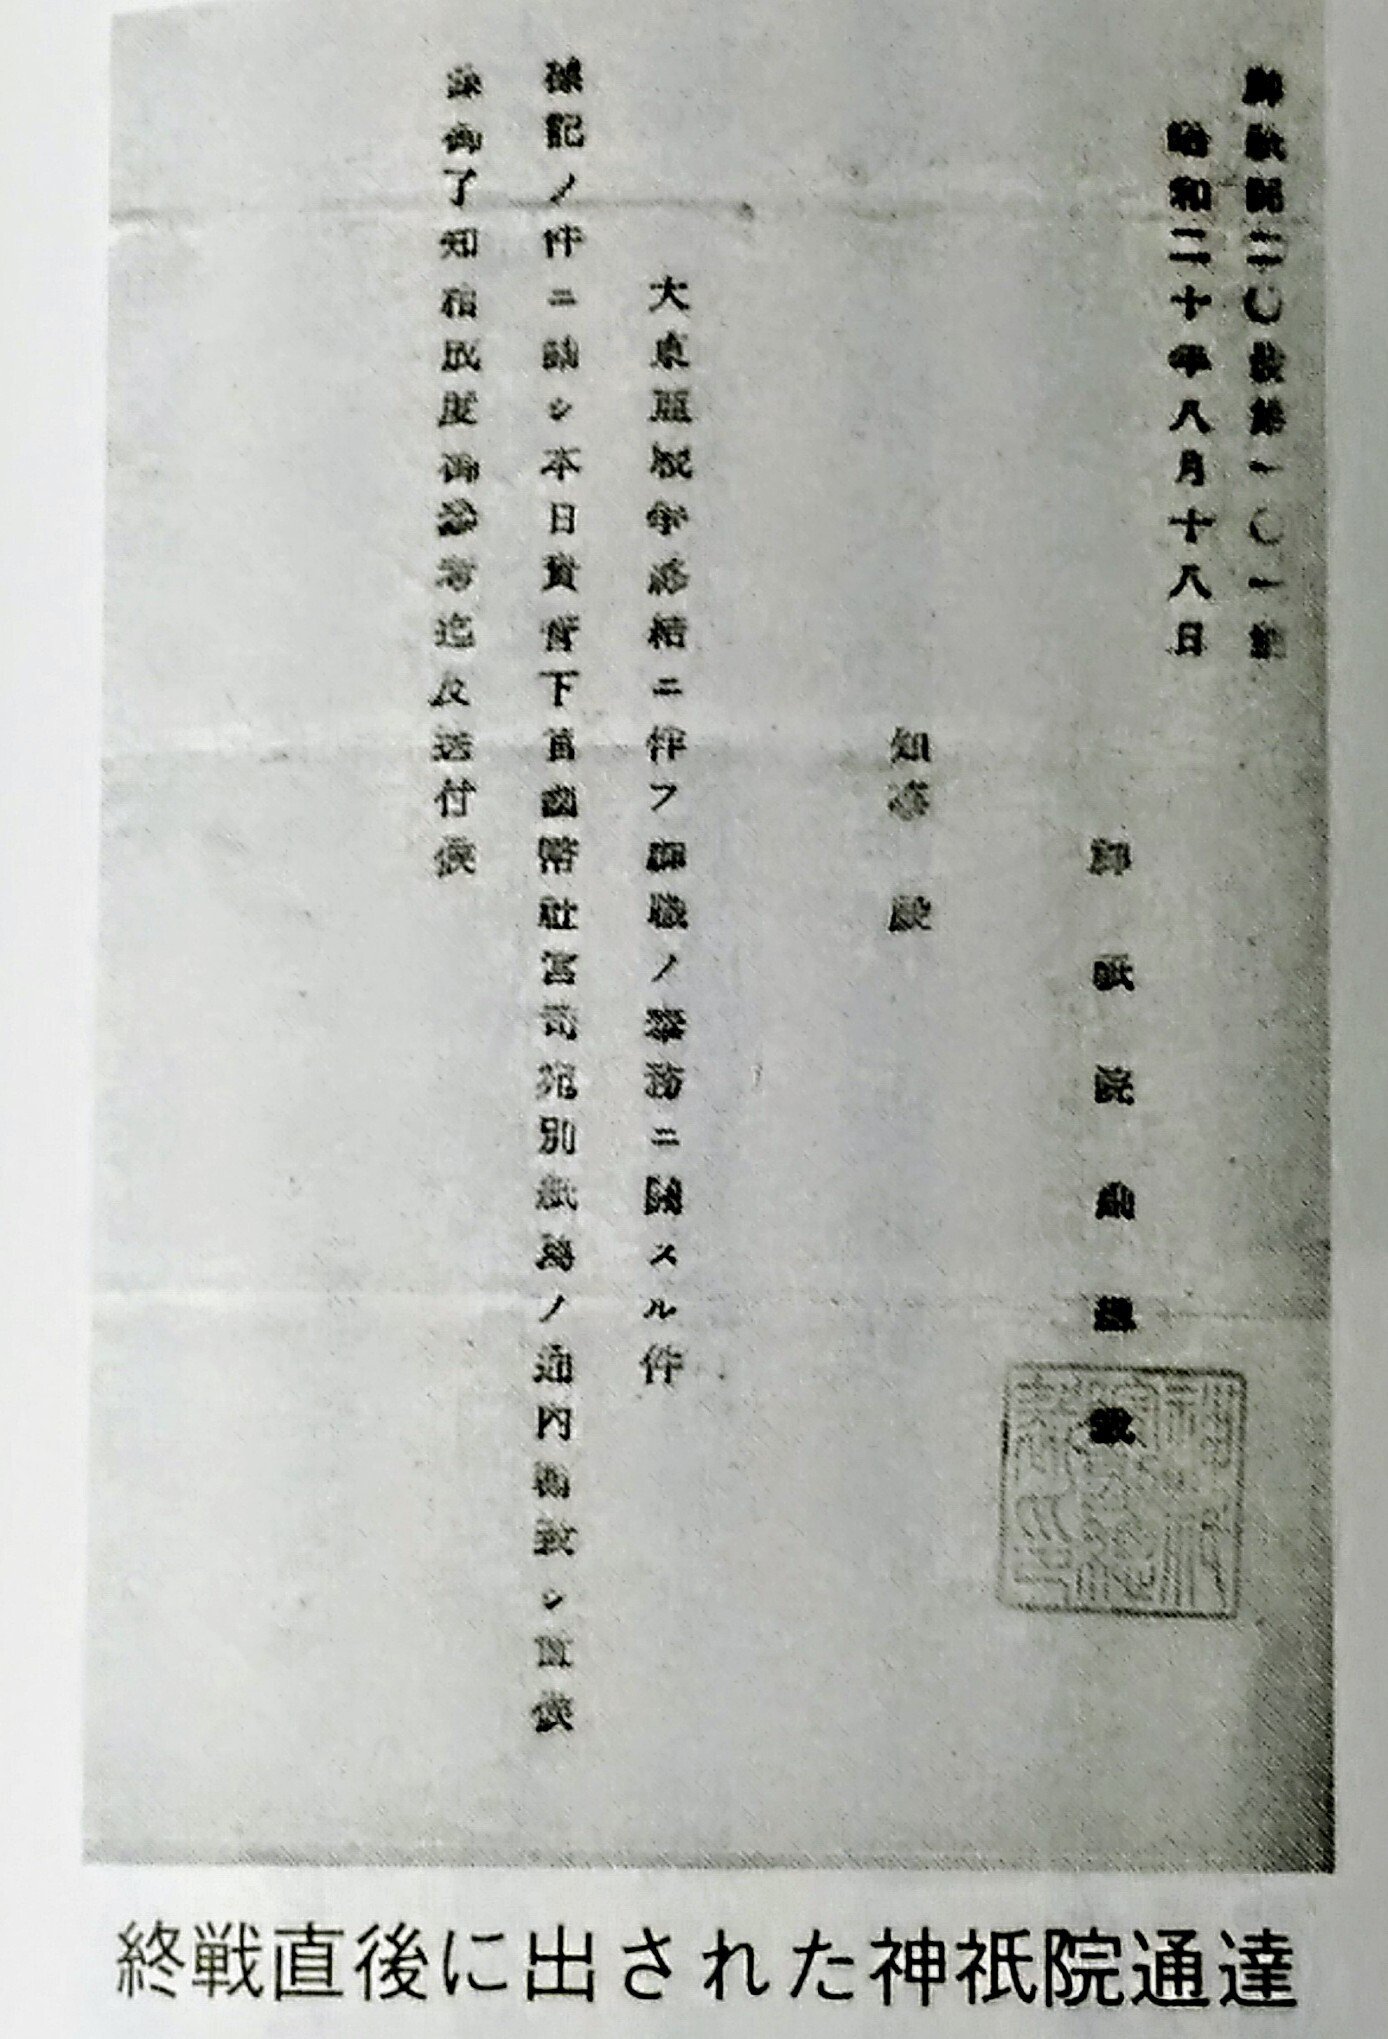 神祇院二〇発第一〇一號
昭和二十年八月十八日
神祇院副總裁
知事殿
大東亞戰爭終結ニ伴フ神職ノ奉務ニ關スル件
標記ノ件ニ關シ本日貴管下官國幣社宮司宛別紙寫ノ通内牒致シ置候
條御了知相成度御參考迄及送付候
終戦直後に出された神祇院通達